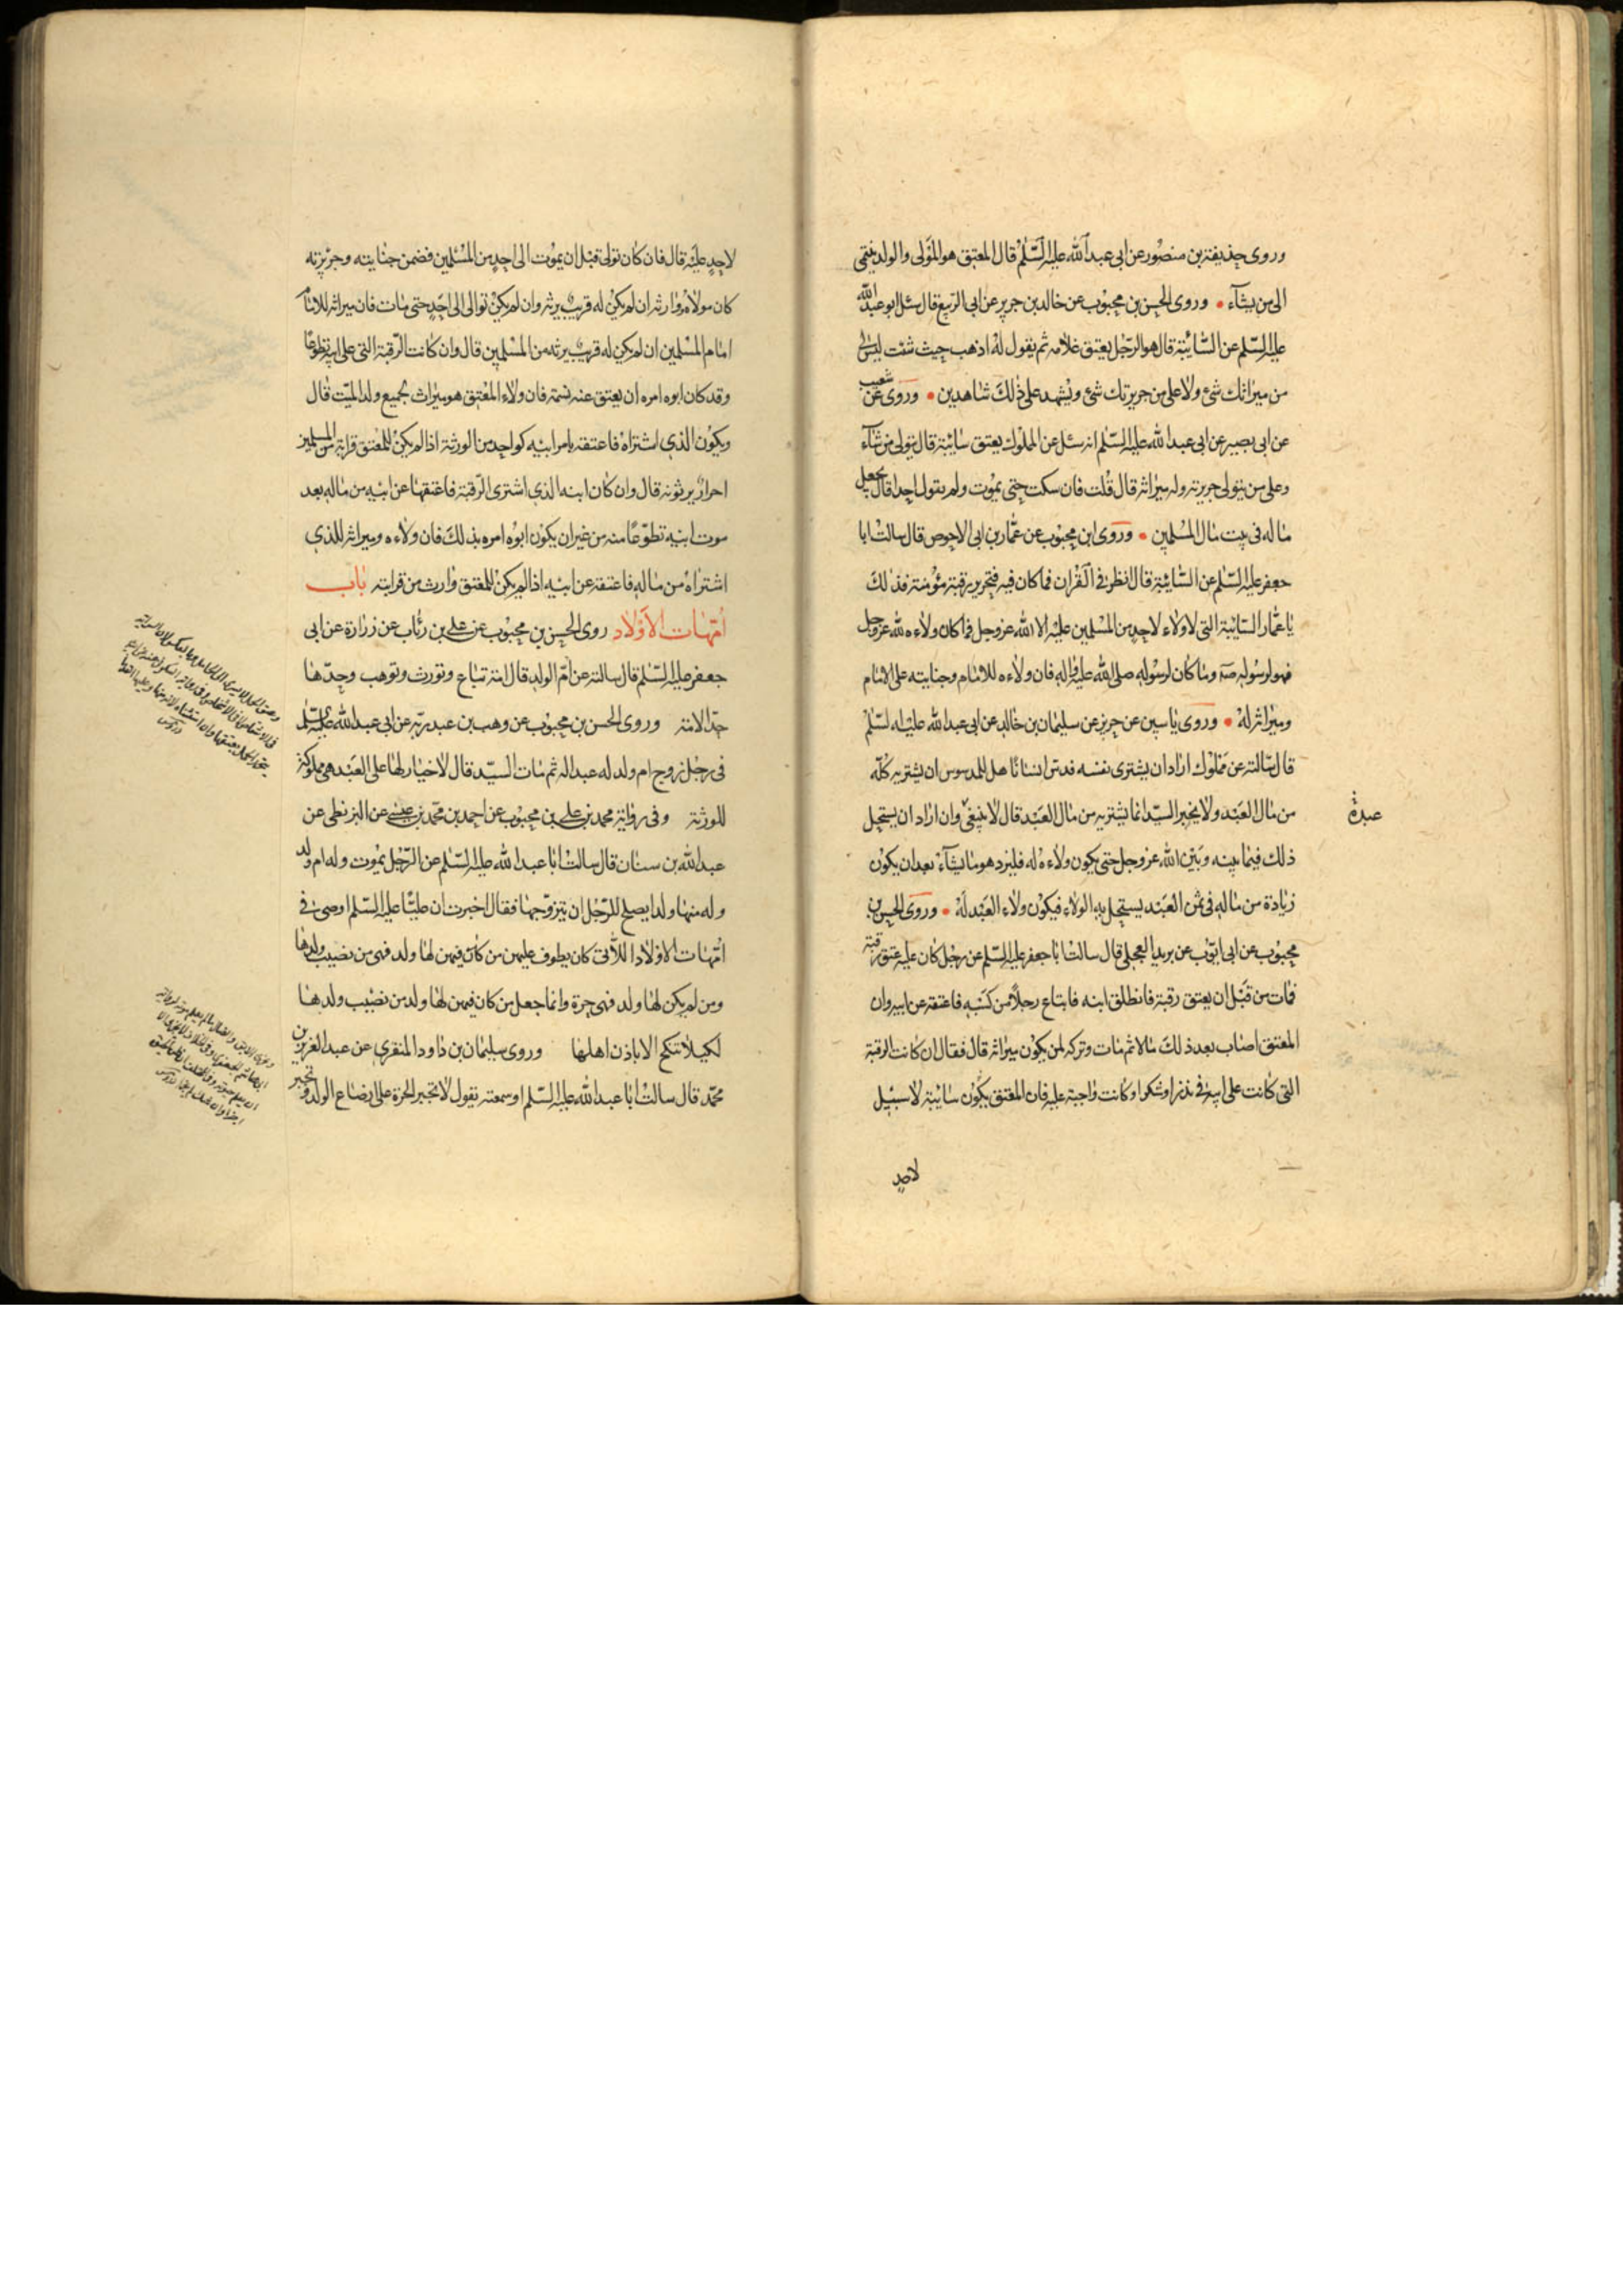 وروى حذيفة بن منصور عن ابى عبد الله عليه السّلم قال المعتق هو المولى والولد ينتمى
الى من يشآء • وروى الحسن بن محبوب عن خالد بن جرير عن ابى الربيع قال سئل ابو عبد الله
عليه السّلم عن السّائبة قال هو الرّجل يعتق غلامه ثم يقول له اذهب حيث شئت ليس لى
من ميراثك شئ ولا على من جريرتك شئ ويشهد على ذلك شاهدين • وروى عن شعيب
عن ابى بصير عن ابى عبد الله عليه السّلم انه سئل عن المملوك يعتق سائبة قال يتولى من شآء
وعلى من يتولى جريرته وله ميراثه قال قلت فان سكت حتى يموت ولم يتول احدا قال يجعل
ماله فى بيت مال المسلمين • وروى ابن محبوب عن عمّار بن ابى الاحوص قال سالت ابا
جعفر عليه السّلم عن السّائبة قال انظر فى القران فما كان فيه فتحرير رقبة مؤمنة فذلك
يا عمّار السّائبة التى لا ولاء لاحد من المسلمين عليه الا الله عز وجل فما كان ولاءه لله عز وجل
فهو لرسوله صه وما كان لرسوله صلى الله عليه واله فان ولاءه للامام وجنايته على الامام
وميراثه له • وروى ياسين عن حريز عن سليمان بن خالد عن ابى عبد الله عليه السّلم
قال سالته عن مملوك اراد ان يشترى نفسه فدس انسانا هل للمدسوس ان يشتريه كلّه
من مال العبد ولا يخبر السيّد انما يشتريه من مال العبد قال لا ينبغى وان اراد ان يستحل
عبدة
ذلك فيما بينه وبين الله عز وجل حتى يكون ولاءه له فليزد هو ما يشآء بعد ان يكون
زيادة من ماله فى ثمن العبد يستحل به الولاء فيكون ولاء العبد له • وروى الحسن بن
محبوب عن ابى ايّوب عن بريد العجلى قال سالت ابا جعفر عليه السّلم عن رجل كان عليه عتق رقبة
فمات من قبل ان يعتق رقبة فانطلق ابنه فابتاع رجلا من كسبه فاعتقه عن ابيه وان
المعتق اصاب بعد ذلك مالا ثم مات وتركه لمن يكون ميراثه قال فقال ان كانت الرقبة
التى كانت على ابيه فى نذر او شكر او كانت واجبة عليه فان المعتق يكون سائبة لا سبيل
لاحد
لاحد عليه قال فان كان تولى قبل ان يموت الى احد من المسلمين فضمن جنايته وجريرته
كان مولاه ووارثه ان لم يكن له قريب يرثه وان لم يكن توالى الى احد حتى مات فان ميراثه للامام
امام المسلمين ان لم يكن له قريب يرثه من المسلمين قال وان كانت الرّقبة التى على ابيه تطوعا
وقد كان ابوه امره ان يعتق عنه نسمة فان ولاء المعتق هو ميراث لجميع ولد الميّت قال
ويكون الذى اشتراه فاعتقه بامر ابيه كواحد من الورثة اذا لم يكن للمعتق قرابة من المسلمين
احرار يرثونه قال وان كان ابنه الذى اشترى الرّقبة فاعتقها عن ابيه من ماله بعد
موت ابيه تطوّعا منه من غير ان يكون ابوه امره بذلك فان ولاءه وميراثه للذى
اشتراه من ماله فاعتقه عن ابيه اذا لم يكن للمعتق وارث من قرابته باب
امّهات الاولاد روى الحسن بن محبوب عن على بن رئاب عن زرارة عن ابى
جعفر عليه السّلم قال سالته عن امّ الولد قال امة تباع وتورث وتوهب وحدّها
حدّ الامة وروى الحسن بن محبوب عن وهب بن عبد ربّه عن ابى عبد الله عليه السّلم
فى رجل زوج ام ولد له عبدا له ثم مات السيّد قال لا خيار لها على العبد هى مملوكة
للورثة وفى رواية محمد بن على بن محبوب عن احمد بن محمّد بن عيسى عن البزنطى عن
عبد الله بن سنان قال سالت ابا عبد الله عليه السّلم عن الرّجل يموت وله ام ولد
وله منها ولد ايصلح للرّجل ان يتزوّجها فقال اخبرت ان عليّا عليه السّلم اوصى فى
امّهات الاولاد اللآتى كان يطوف عليهن من كان فيهن لها ولد فهى من نصيب ولدها
ومن لم يكن لها ولد فهى حرة وانما جعل من كان فيهن لها ولد من نصيب ولدها
لكيلا تنكح الا باذن اهلها وروى سليمان بن داود المنقرى عن عبد العزيز بن
محمّد قال سالت ابا عبد الله عليه السّلم او سمعته يقول لا تجبر الحرة على رضاع الولد وتجبر